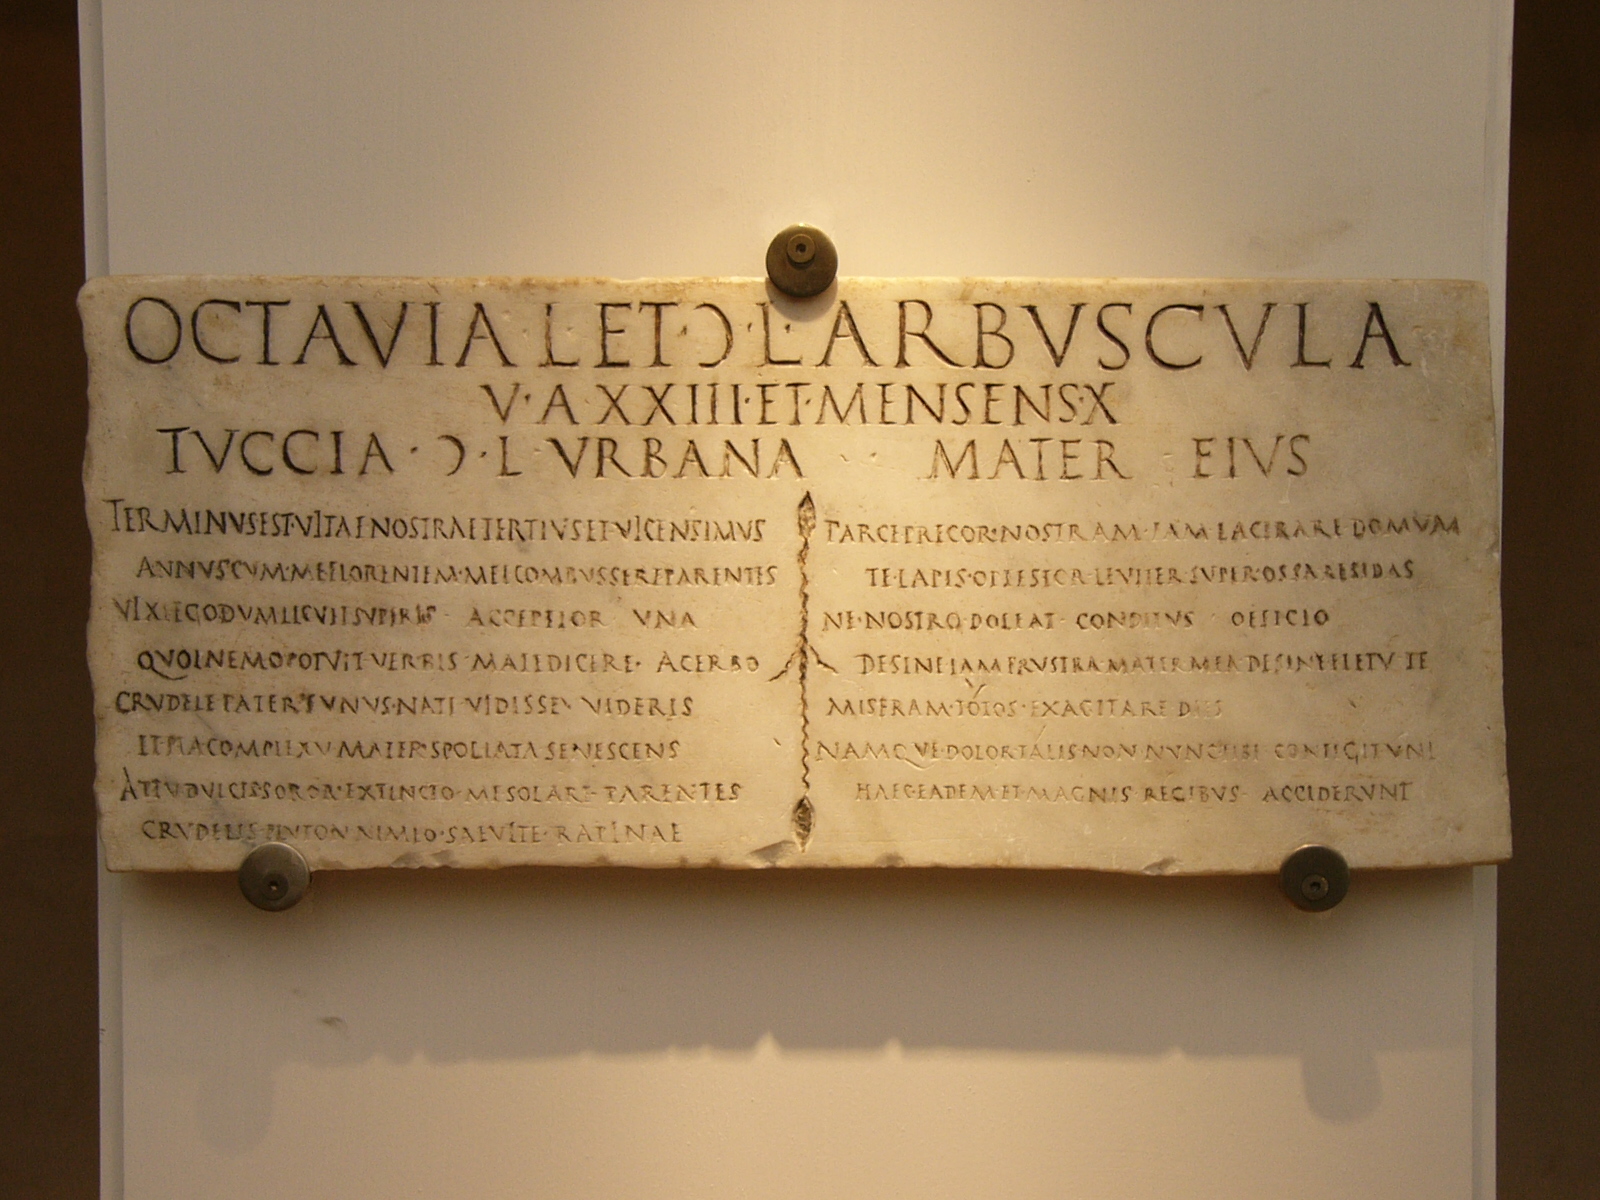 OCTAVIA · L · ET · Ɔ · L · ARBVSCVLA
V · A XXIII · ET · MENSENS · X
TVCCIA · Ɔ · L VRBANA MATER EIVS
TERMINVS EST VITAE NOSTRAE TERTIVS ET VICENSIMVS
ANNVS CVM ME FLORENTEM MEI COMBVSSERE PARENTES
VIXI EGO DVM LICVIT SVPERIS ACCEPTIOR VNA
QVOI NEMO POTVIT VERBIS MALEDICERE ACERBO
CRVDELE PATER FVNVS NATI VIDISSE VIDERIS
ET PIA COMPLEXV MATER SPOLIATA SENESCENS
AT TV DVLCIS SOROR EXTINCTO ME SOLARE PARENTES
CRVDELIS PLVTON NIMIO SAEVITE RAPINAE
PARCE PRECOR NOSTRAM IAM LACERARE DOMVM
TE LAPIS OPTESTOR LEVITER SVPER OSSA RESIDAS
NE NOSTRO DOLEAT CONDITVS OFFICIO
DESINE IAM FRVSTRA MATER MEA DESINE FLETV TE
MISERAM TOTOS EXAGITARE DIES
NAMQVE DOLOR TALIS NON NVNC TIBI CONTIGIT VNI
HAEC EADEM ET MAGNIS REGIBVS ACCIDERVNT